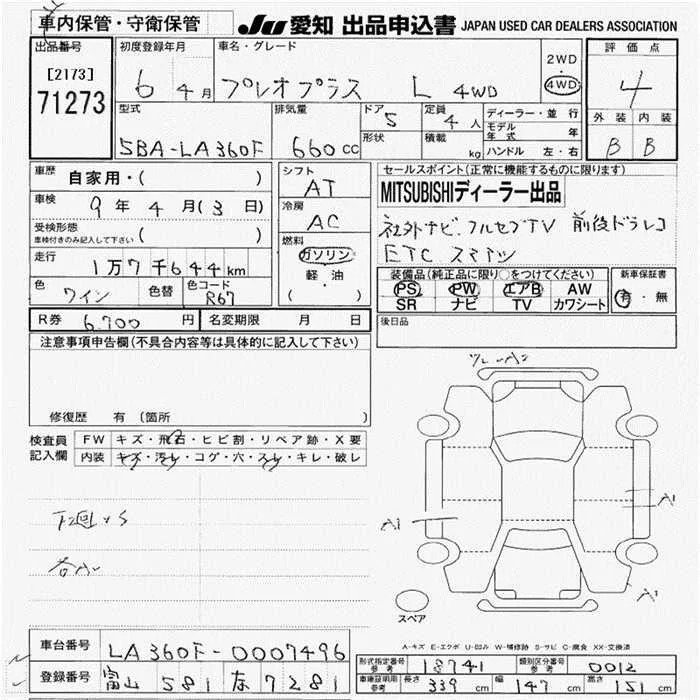 車内保管・守衛保管 JU 愛知 出品申込書 JAPAN USED CAR DEALERS ASSOCIATION
出品番号 初度登録年月 車名・グレード 2WD 評価点
[2173] 6 4月 プレオプラス L 4WD 4WD 4
71273
型式 排気量 ドア 5 定員 4人 ディーラー・並行 外装 内装
SBA-LA360F 660cc 形状 積載 kg モデル年式 年 B B
ハンドル 左・右
車歴 自家用・( ) シフト AT セールスポイント(正常に機能するものに限ります)
車検 9年 4月(3日) 冷房 AC MITSUBISHIディーラー出品
受検形態 ( ) 社外ナビ フルセグTV 前後ドラレコ
車検付きのみ記入して下さい 燃料 ETC スマアシ
走行 1万7千644km ガソリン 装備品(純正品に限り○をつけてください) 新車保証書
色 ワイン 色替 色コード R67 軽・油 PS PW エアB AW 有・無
( ) SR ナビ TV カワシート
R券 6,700円 名変期限 月 日 後日品
注意事項申告欄(不具合内容等は具体的に記入して下さい)
修復歴 有(箇所
検査員 FW キズ・飛石・ヒビ割・リペア跡・X要
記入欄 内装 キズ・汚れ・コゲ・穴・スレ・キレ・破レ
A1
A1
下廻りS
A1
スペア
A-キズ E-エクボ U-凹み W-補修跡 S-サビ C-腐食 XX-交換済
車台番号 LA360F-0007496 形式指定番号 参考 18741 類別区分番号 参考 0012
登録番号 富山 581 な 7281 車庫証明用 参考 長さ 339cm 幅 147cm 高さ 151cm